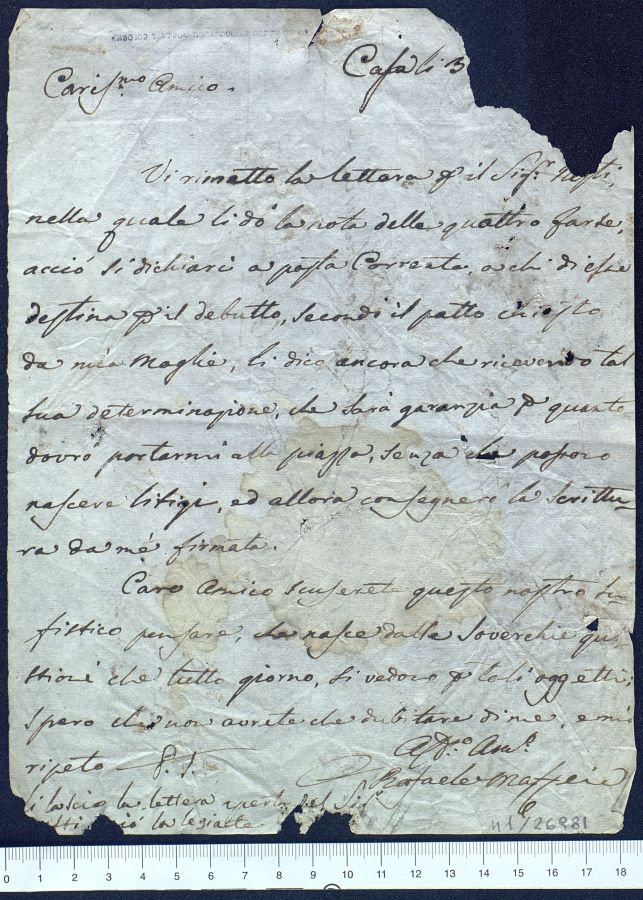 Casali 3
Caris.mo Amico.
Vi rimetto la lettera p il Sig.r
nella quale li dò la nota delle quattro farse,
acciò si dichiari a posta Corrente, a chi di esse
destina p il debutto, secondo il patto chiesto
da mia Moglie, li dico ancora che ricevendo tal
sua determinazione, che sarà garanzia p quanto
dovrò portarmi alla piazza, senza che possono
nascere litigi, ed allora consegnerò la scrittu-
ra da me firmata.
Caro Amico scuserete questo nostro su
fistico pensare, che nasce dalle soverchie qui
stioni che tutto giorno, si vedono p tali oggetti;
spero che non avrete che dubitare di me, e mi
ripeto P.S.
Aff.o Am.o
Rafaele
li lascio la lettera aperta del Sig.r
ciò la legiate
41/26981
0 1 2 3 4 5 6 7 8 9 10 11 12 13 14 15 16 17 18